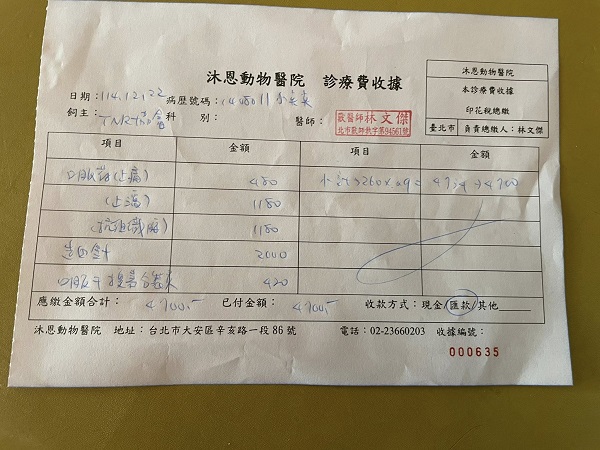 沐恩動物醫院 診療費收據
沐恩動物醫院
本診療費收據
印花稅總繳
臺北市 負責總繳人：林文傑
日期：114.12.22 病歷號碼：
飼主：TNR協會 科 別： 醫師： 獸醫師 林文傑
北市獸師執字第94561號
項目 金額 項目 金額
口服藥(止痛) 480
(止瀉) 1180
1180
造血針 2000
口服 420
應繳金額合計：4700.- 已付金額：4700.- 收款方式：現金/匯款/其他
沐恩動物醫院 地址：台北市大安區辛亥路一段86號 電話：02-23660203 收據編號：
000635